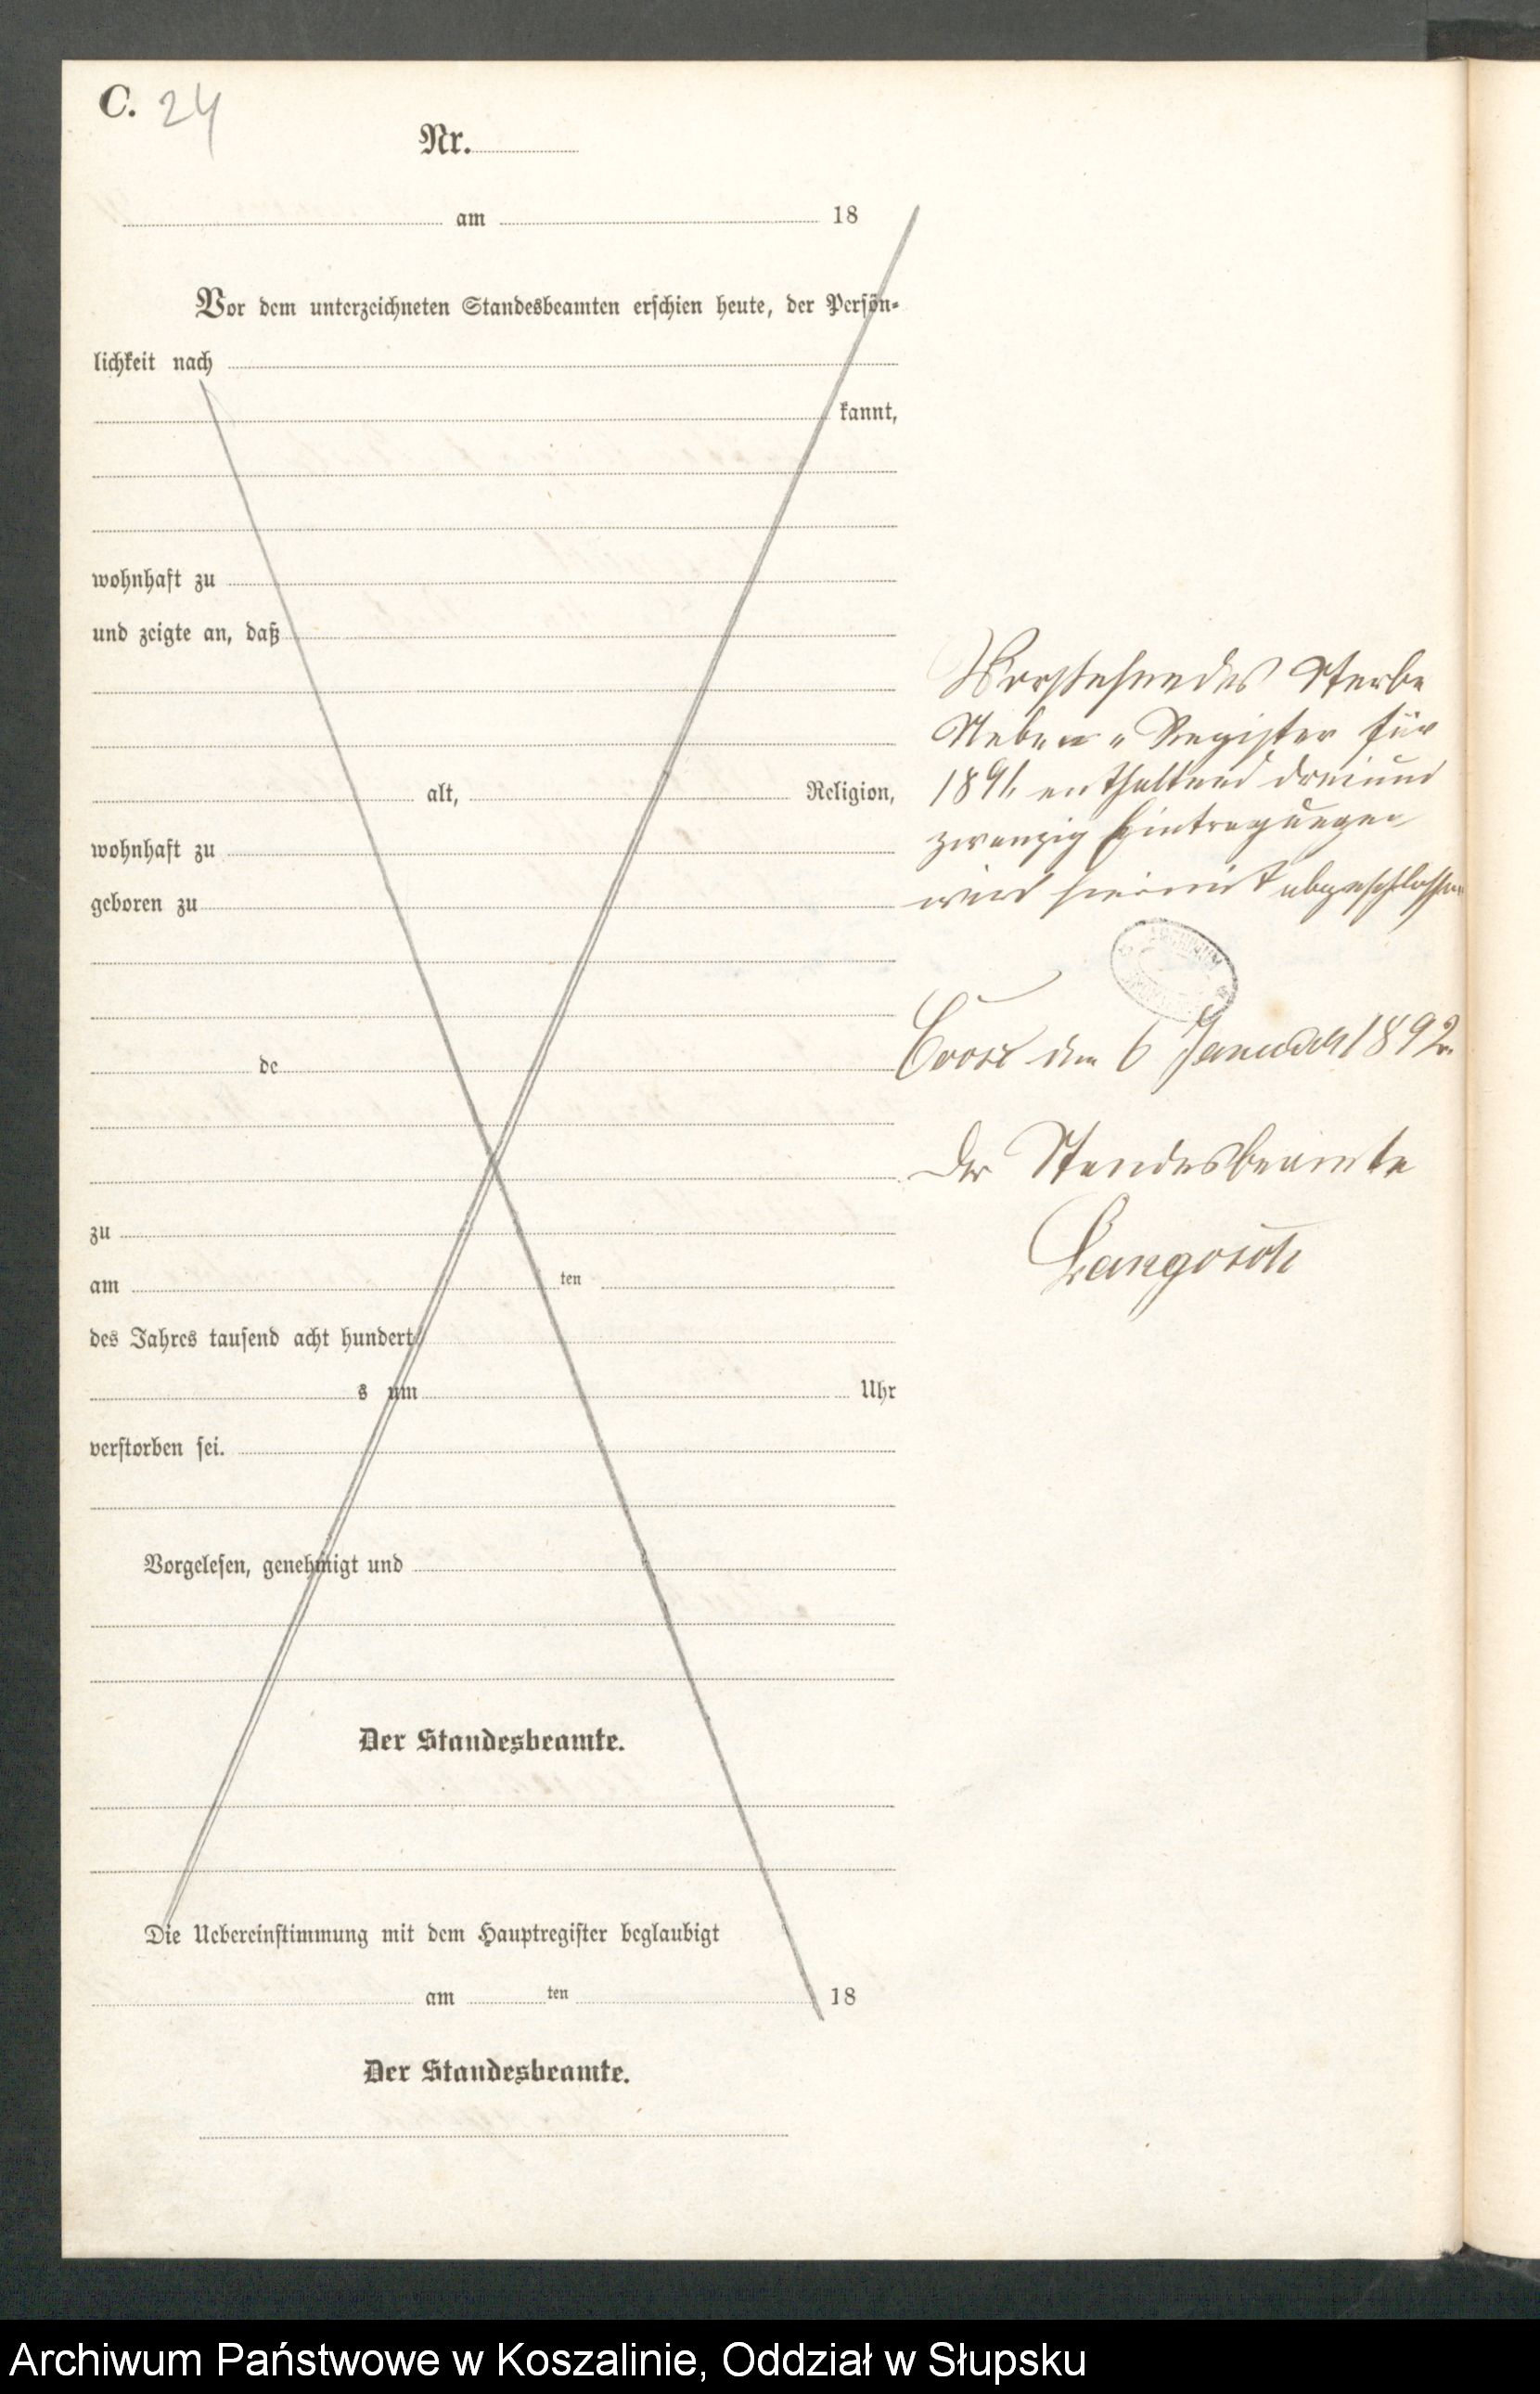 C. 24
Nr.
am 18
Vor dem unterzeichneten Standesbeamten erschien heute, der Persön-
lichkeit nach
kannt,
wohnhaft zu
und zeigte an, daß
alt, Religion,
wohnhaft zu
geboren zu
de
zu
am ten
des Jahres tausend acht hundert
s um Uhr
verstorben sei.
Vorgelesen, genehmigt und
Der Standesbeamte.
Die Uebereinstimmung mit dem Hauptregister beglaubigt
am ten 18
Der Standesbeamte.
Vorstehendes Sterbe
Neben-Register für
1891 enthaltend dreiund
zwanzig Eintragungen
wird hiermit abgeschlossen
den 6 Januar 1892.
Der Standesbeamte
Langosch
Archiwum Państwowe w Koszalinie, Oddział w Słupsku